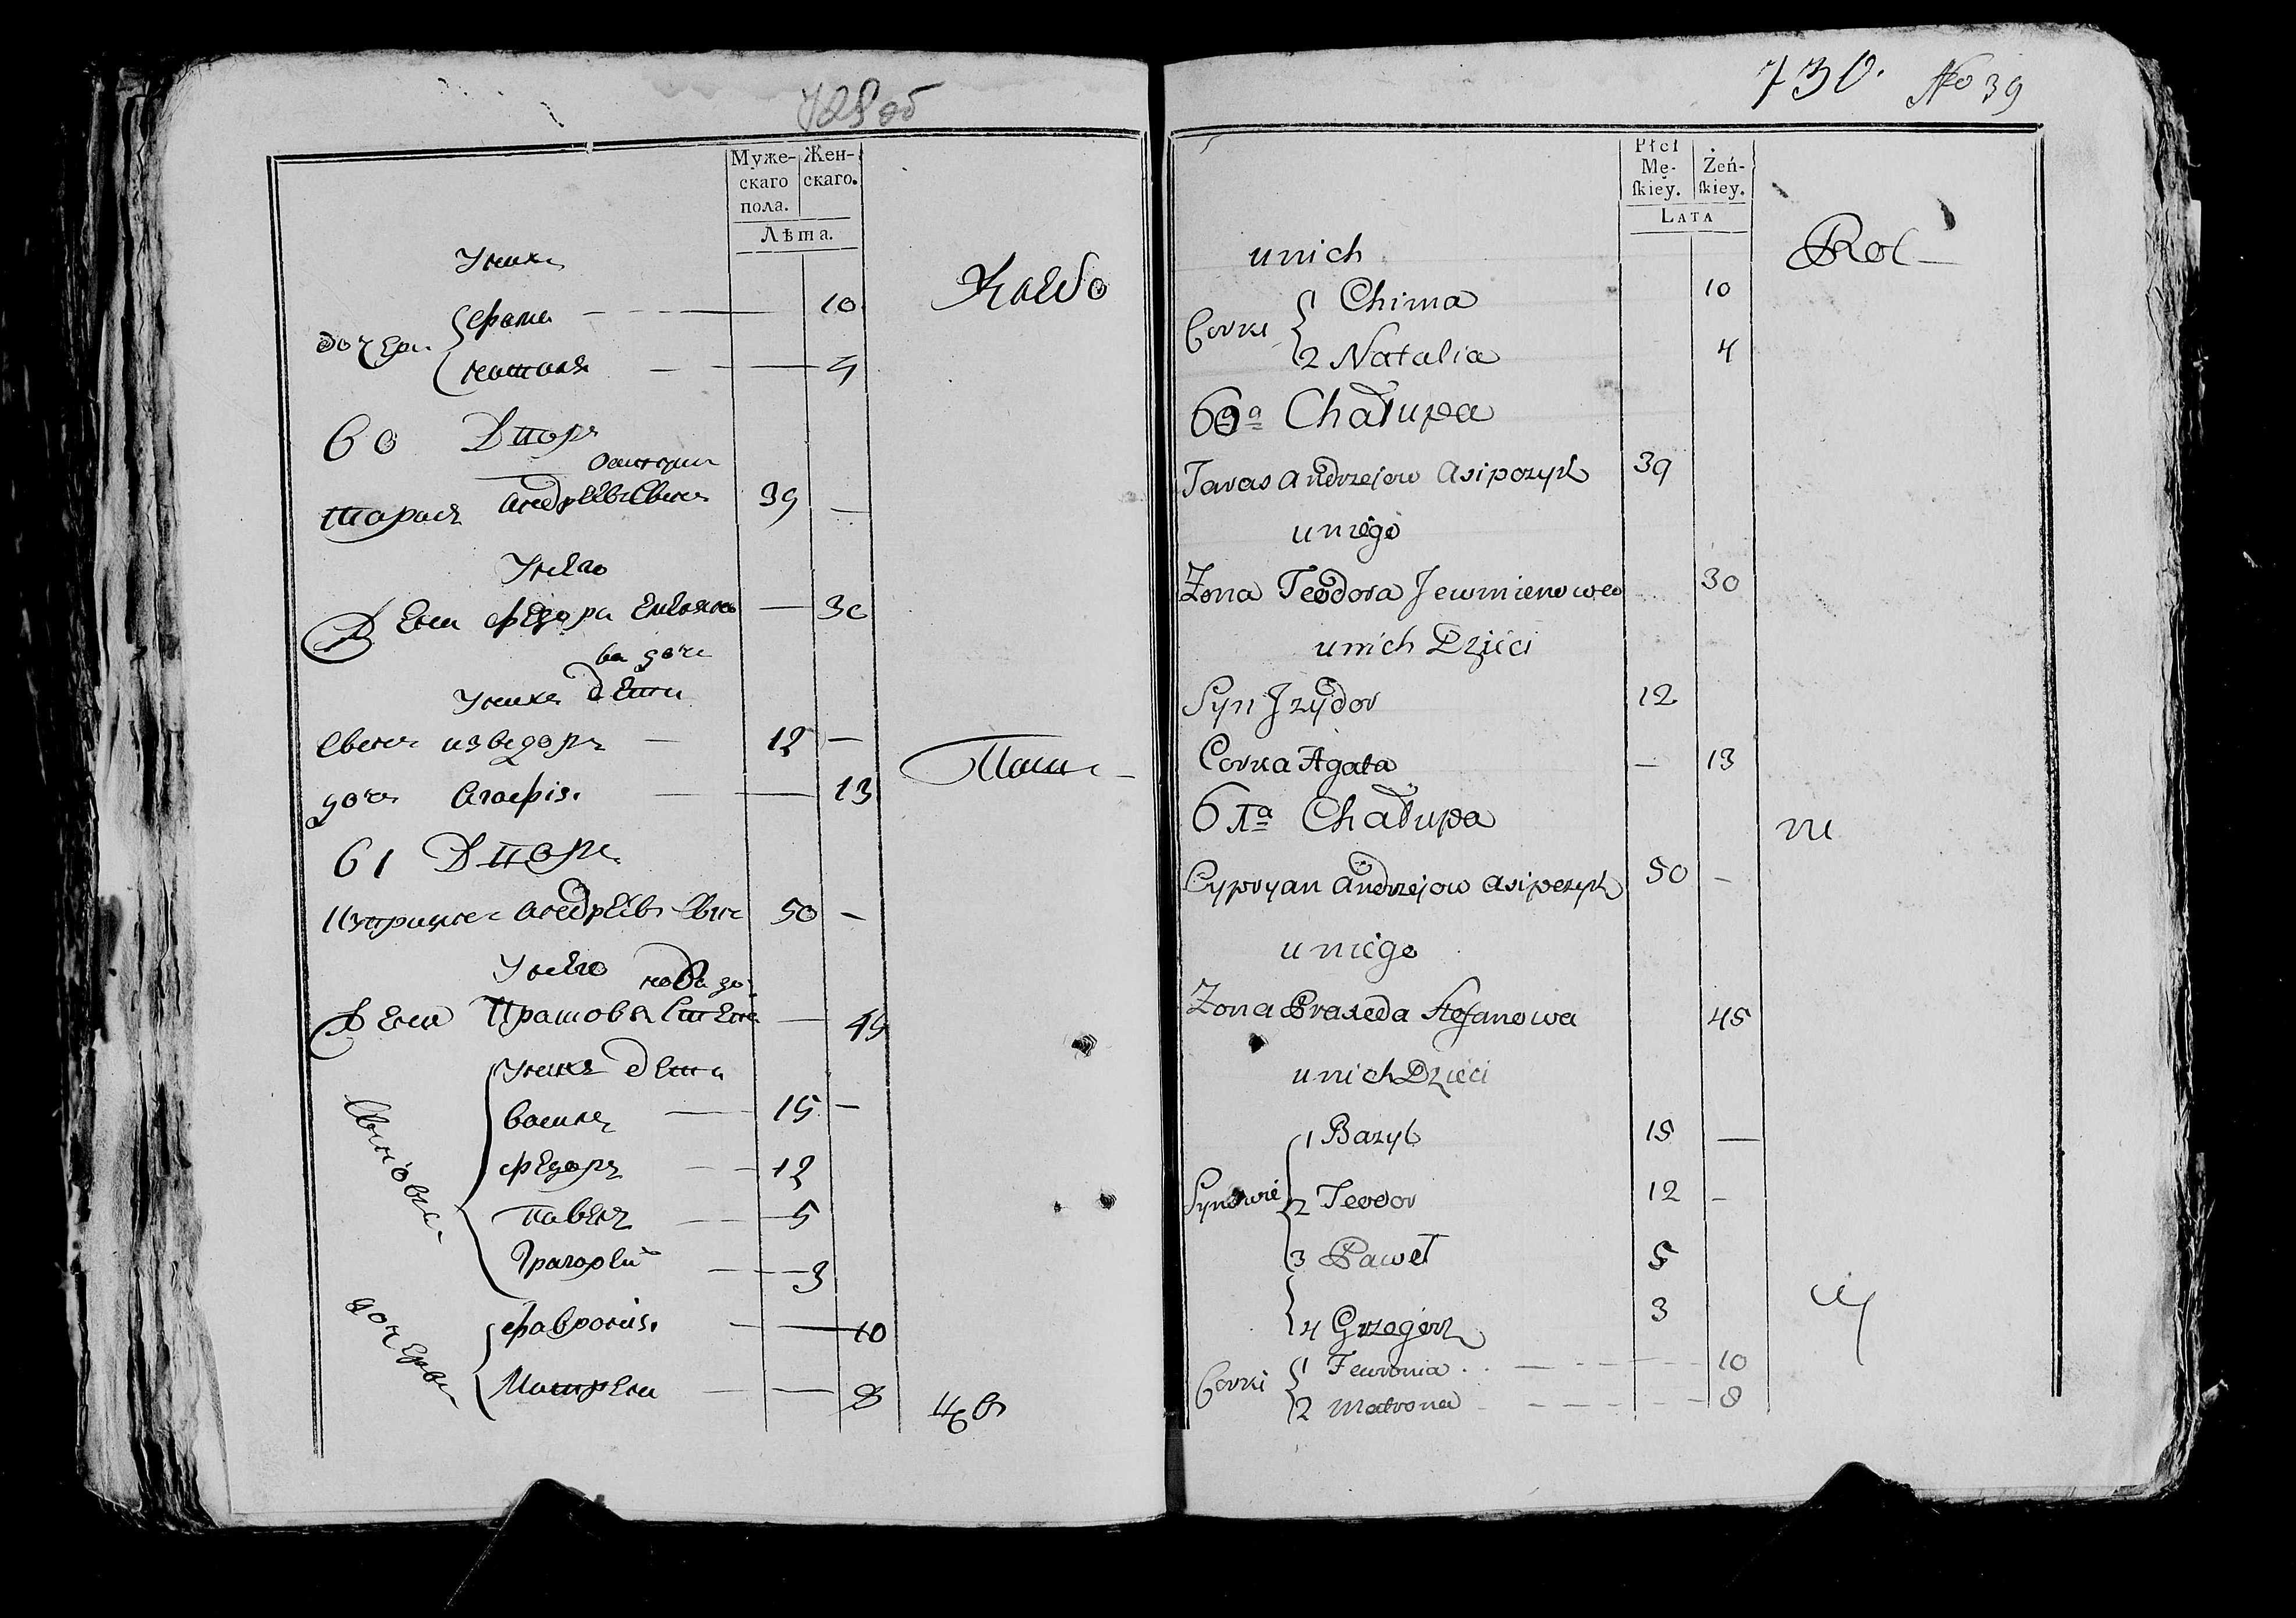 728 об
Муже-
скаго
пола.
Жен-
скаго.
Лѣта.
Уних
дочери
Фома 10
Наталя 4
60 Двор
Осипчик
Тарас Андреев Сын 39
Унего
Жена Федора Емельяно 30
ва дочь
Уних дети
Сын Изидор 12
дочь Агафія 13
61 Двор
Куприян Андреев Сын 50
Унего
нова до
Жена Прасковя Степа 45
Уних дети
Сыновья
Василь 15
Федор 12
Павел 5
Григорей 3
дочери
Февронія 10
Матрена 8
730. No 39
Płci
Mę-
ſkiey.
Żeń-
ſkiey.
LATA
unich
Corki
1 Chima 10
2 Natalia 4
60a Chałupa
Taras Andrzejow Asipczyk 39
uniego
Zona Teodora Jewmienowa 30
unich Dzieci
Syn Jzydor 12
Corka Agata — 13
61a Chałupa
Cypryan Andrzejow Asipczyk 50 —
uniego
Zona Praxeda Stefanowa 45
unich Dzieci
Synowie
1 Bazyl 15 —
2 Teodor 12 —
3 Paweł 5
4 Grzegórz 3
Corki
1 Fewronia 10
2 Matrona 8